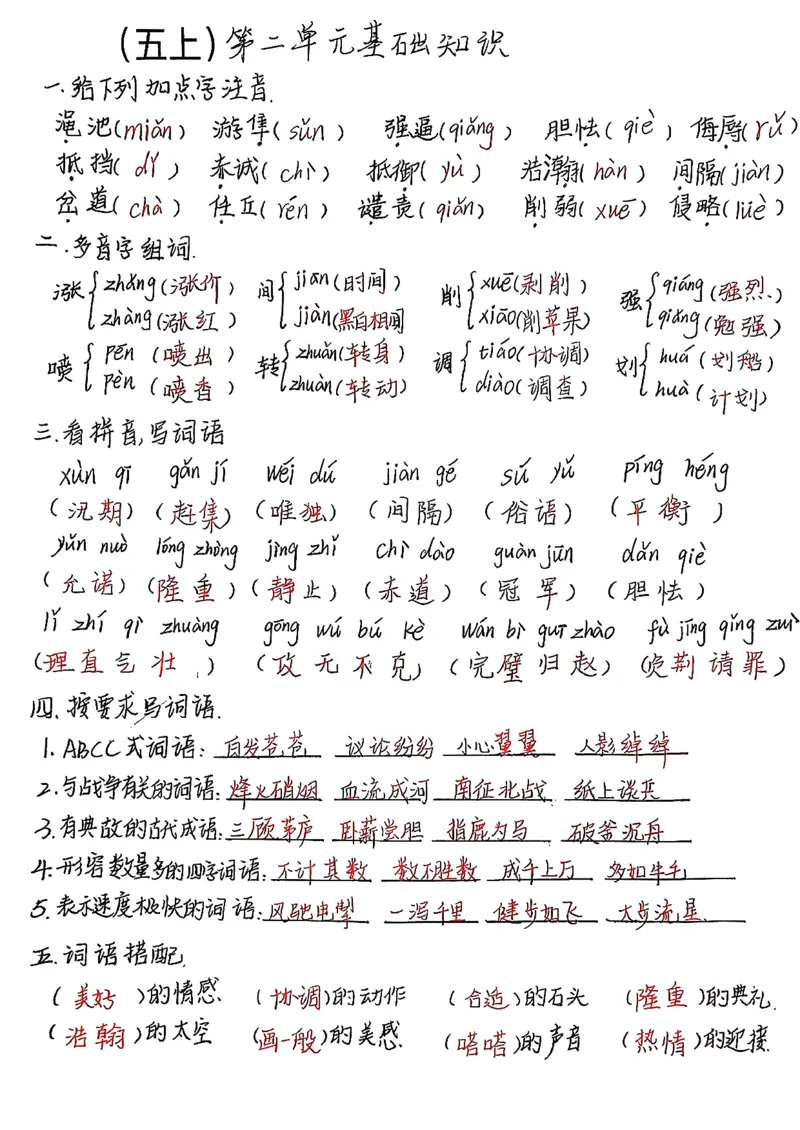 (五上)第二单元基础知识
一.给下列加点字注音.
渑池(miǎn) 游隼(sǔn) 强逼(qiǎng) 胆怯(qiè) 侮辱(rǔ)
抵挡(dǐ) 赤诚(chì) 抵御(yù) 浩瀚(hàn) 间隔(jiàn)
岔道(chà) 任丘(rén) 谴责(qiǎn) 削弱(xuē) 侵略(lüè)
二.多音字组词.
涨{zhǎng(涨价) 间{jiān(时间) 削{xuē(剥削) 强{qiáng(强烈.)
zhàng(涨红) jiàn(黑白相间) xiāo(削苹果) qiǎng(勉强)
喷{pēn(喷出) 转{zhuǎn(转身) 调{tiáo(协调) 划{huá(划船)
pèn(喷香) zhuàn(转动) diào(调查) huà(计划)
三.看拼音,写词语
xùn qī gǎn jí wéi dú jiàn gé sú yǔ píng héng
(汛期) (赶集) (唯独) (间隔) (俗语) (平衡)
yǔn nuò lóng zhòng jìng zhǐ chì dào guàn jūn dǎn qiè
(允诺) (隆重) (静止) (赤道) (冠军) (胆怯)
lǐ zhí qì zhuàng gōng wú bú kè wán bì guī zhào fù jīng qǐng zuì
(理直气壮) (攻无不克) (完璧归赵) (负荆请罪)
四.按要求写词语.
1.ABCC式词语: 白发苍苍 议论纷纷 小心翼翼 人影绰绰
2.与战争有关的词语: 烽火硝烟 血流成河 南征北战 纸上谈兵
3.有典故的古代成语: 三顾茅庐 卧薪尝胆 指鹿为马 破釜沉舟
4.形容数量多的四字词语: 不计其数 数不胜数 成千上万 多如牛毛
5.表示速度极快的词语: 风驰电掣 一泻千里 健步如飞 大步流星.
五.词语搭配.
(美好)的情感. (协调)的动作 (合适)的石头 (隆重)的典礼.
(浩瀚)的太空 (画一般)的美感. (嗒嗒)的声音 (热情)的迎接.